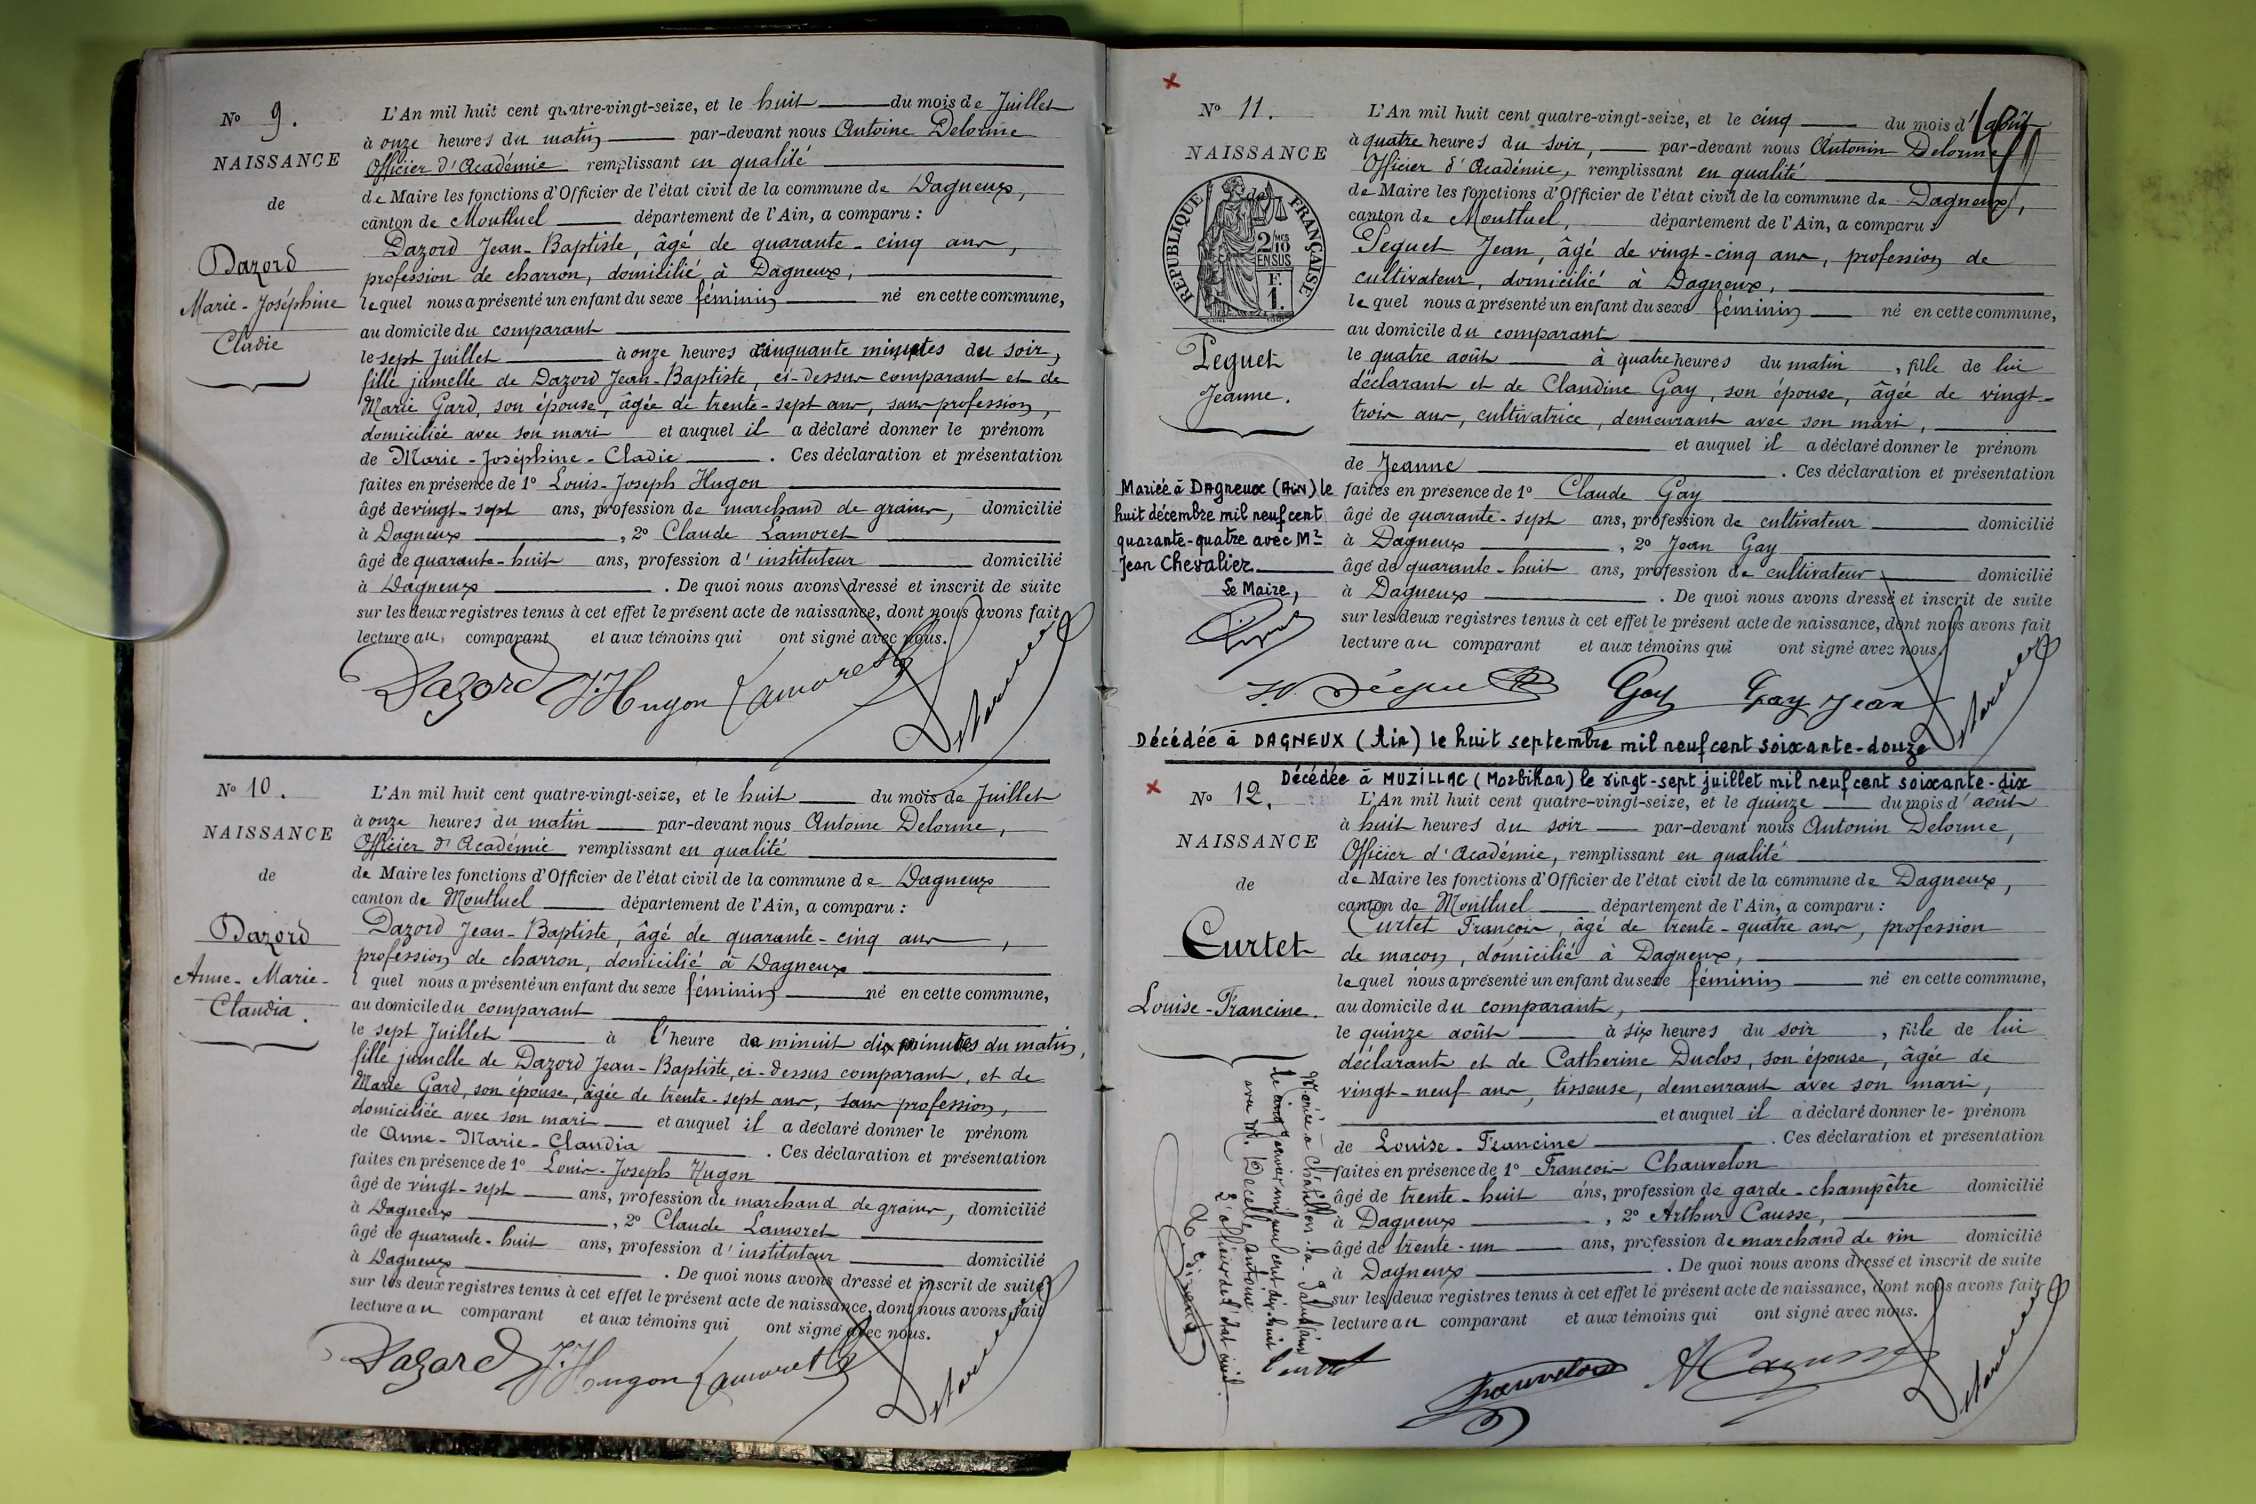 N° 9.
NAISSANCE
de
Dazord
Marie-Joséphine
Cladie
L'An mil huit cent quatre-vingt-seize, et le huit du mois de Juillet
à onze heures du matin par-devant nous Antoine Delorme
Officier d'Académie remplissant en qualité
de Maire les fonctions d'Officier de l'état civil de la commune de Dagneux,
canton de Montluel département de l'Ain, a comparu :
Dazord Jean-Baptiste, âgé de quarante-cinq ans,
profession de charron, domicilié à Dagneux,
lequel nous a présenté un enfant du sexe féminin né en cette commune,
au domicile du comparant
le sept Juillet à onze heures cinquante minutes du soir,
fille jumelle de Dazord Jean-Baptiste, ci-dessus comparant et de
Marie Gard, son épouse, âgée de trente-sept ans, sans profession,
domiciliée avec son mari et auquel il a déclaré donner le prénom
de Marie-Joséphine-Cladie . Ces déclaration et présentation
faites en présence de 1° Louis-Joseph Hugon
âgé de vingt-sept ans, profession de marchand de grains, domicilié
à Dagneux , 2° Claude Lamoret
âgé de quarante-huit ans, profession d'instituteur domicilié
à Dagneux . De quoi nous avons dressé et inscrit de suite
sur les deux registres tenus à cet effet le présent acte de naissance, dont nous avons fait
lecture au comparant et aux témoins qui ont signé avec nous.
Dazord J. Hugon Lamoret Delorme
N° 10.
NAISSANCE
de
Dazord
Anne-Marie-
Claudia.
L'An mil huit cent quatre-vingt-seize, et le huit du mois de Juillet
à onze heures du matin par-devant nous Antoine Delorme,
Officier d'Académie remplissant en qualité
de Maire les fonctions d'Officier de l'état civil de la commune de Dagneux
canton de Montluel département de l'Ain, a comparu :
Dazord Jean-Baptiste, âgé de quarante-cinq ans,
profession de charron, domicilié à Dagneux
l quel nous a présenté un enfant du sexe féminin né en cette commune,
au domicile du comparant
le sept Juillet à l'heure de minuit dix minutes du matin,
fille jumelle de Dazord Jean-Baptiste, ci-dessus comparant, et de
Marie Gard, son épouse, âgée de trente-sept ans, sans profession,
domiciliée avec son mari et auquel il a déclaré donner le prénom
de Anne-Marie-Claudia . Ces déclaration et présentation
faites en présence de 1° Louis-Joseph Hugon
âgé de vingt-sept ans, profession de marchand de grains, domicilié
à Dagneux , 2° Claude Lamoret
âgé de quarante-huit ans, profession d'instituteur domicilié
à Dagneux . De quoi nous avons dressé et inscrit de suite
sur les deux registres tenus à cet effet le présent acte de naissance, dont nous avons fait
lecture au comparant et aux témoins qui ont signé avec nous.
Dazord J. Hugon Lamoret Delorme
N° 11.
NAISSANCE
de
RÉPUBLIQUE FRANÇAISE
2/10
EN SUS
F.
1.
Peguet
Jeanne.
Mariée à DAGNEUX (AIN) le
huit décembre mil neuf cent
quarante-quatre avec Mr
Jean Chevalier
Le Maire,
L'An mil huit cent quatre-vingt-seize, et le cinq du mois d'août
à quatre heures du soir, par-devant nous Antonin Delorme
Officier d'Académie, remplissant en qualité
de Maire les fonctions d'Officier de l'état civil de la commune de Dagneux,
canton de Montluel, département de l'Ain, a comparu :
Peguet Jean, âgé de vingt-cinq ans, profession de
cultivateur, domicilié à Dagneux,
lequel nous a présenté un enfant du sexe féminin né en cette commune,
au domicile du comparant
le quatre août à quatre heures du matin, fille de lui
déclarant et de Claudine Gay, son épouse, âgée de vingt-
trois ans, cultivatrice, demeurant avec son mari,
et auquel il a déclaré donner le prénom
de Jeanne . Ces déclaration et présentation
faites en présence de 1° Claude Gay
âgé de quarante-sept ans, profession de cultivateur domicilié
à Dagneux , 2° Jean Gay
âgé de quarante-huit ans, profession de cultivateur domicilié
à Dagneux . De quoi nous avons dressé et inscrit de suite
sur les deux registres tenus à cet effet le présent acte de naissance, dont nous avons fait
lecture au comparant et aux témoins qui ont signé avec nous.
Gay Gay Jean Delorme
Décédée à DAGNEUX (Ain) le huit septembre mil neuf cent soixante-douze
Décédée à MUZILLAC (Morbihan) le vingt-sept juillet mil neuf cent soixante-dix
N° 12.
NAISSANCE
de
Curtet
Louise-Francine.
Mariée à Châtillon-la-Palud (Ain)
le cinq janvier mil neuf cent dix huit
avec M. Decelle Antoine
L'officier de l'état civil.
L'An mil huit cent quatre-vingt-seize, et le quinze du mois d'août
à huit heures du soir par-devant nous Antonin Delorme,
Officier d'Académie, remplissant en qualité
de Maire les fonctions d'Officier de l'état civil de la commune de Dagneux,
canton de Montluel département de l'Ain, a comparu :
Curtet François, âgé de trente-quatre ans, profession
de maçon, domicilié à Dagneux,
lequel nous a présenté un enfant du sexe féminin né en cette commune,
au domicile du comparant,
le quinze août à six heures du soir, fille de lui
déclarant et de Catherine Duclos, son épouse, âgée de
vingt-neuf ans, tisseuse, demeurant avec son mari,
et auquel il a déclaré donner le prénom
de Louise-Francine . Ces déclaration et présentation
faites en présence de 1° François Chauvelon
âgé de trente-huit ans, profession de garde-champêtre domicilié
à Dagneux , 2° Arthur Causse,
âgé de trente-un ans, profession de marchand de vin domicilié
à Dagneux . De quoi nous avons dressé et inscrit de suite
sur les deux registres tenus à cet effet le présent acte de naissance, dont nous avons fait
lecture au comparant et aux témoins qui ont signé avec nous.
Curtet Chauvelon A Causse Delorme